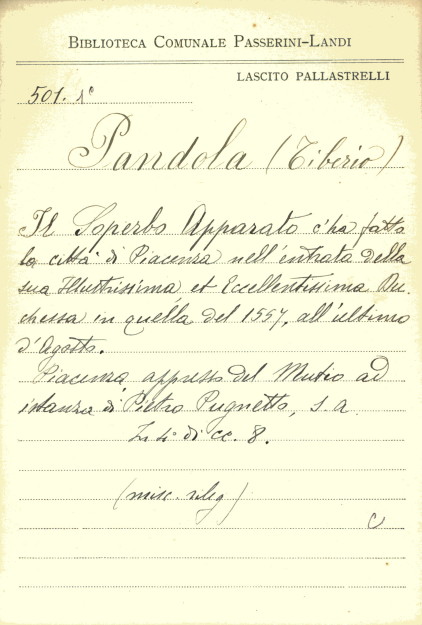 BIBLIOTECA COMUNALE PASSERINI-LANDI
LASCITO PALLASTRELLI
501. 1º
Pandola (Tiberio)
Il Soperbo Apparato c'ha fatto
la città di Piacenza nell'entrata della
sua Illustrissima et Eccellentissima Du-
chessa in quella del 1557, all'ultimo
d'Agosto.
Piacenza, appresso del Mutio ad
istanza di Pietro Pugnetto, s. a.
In 4º di cc. 8.
(misc. rileg)